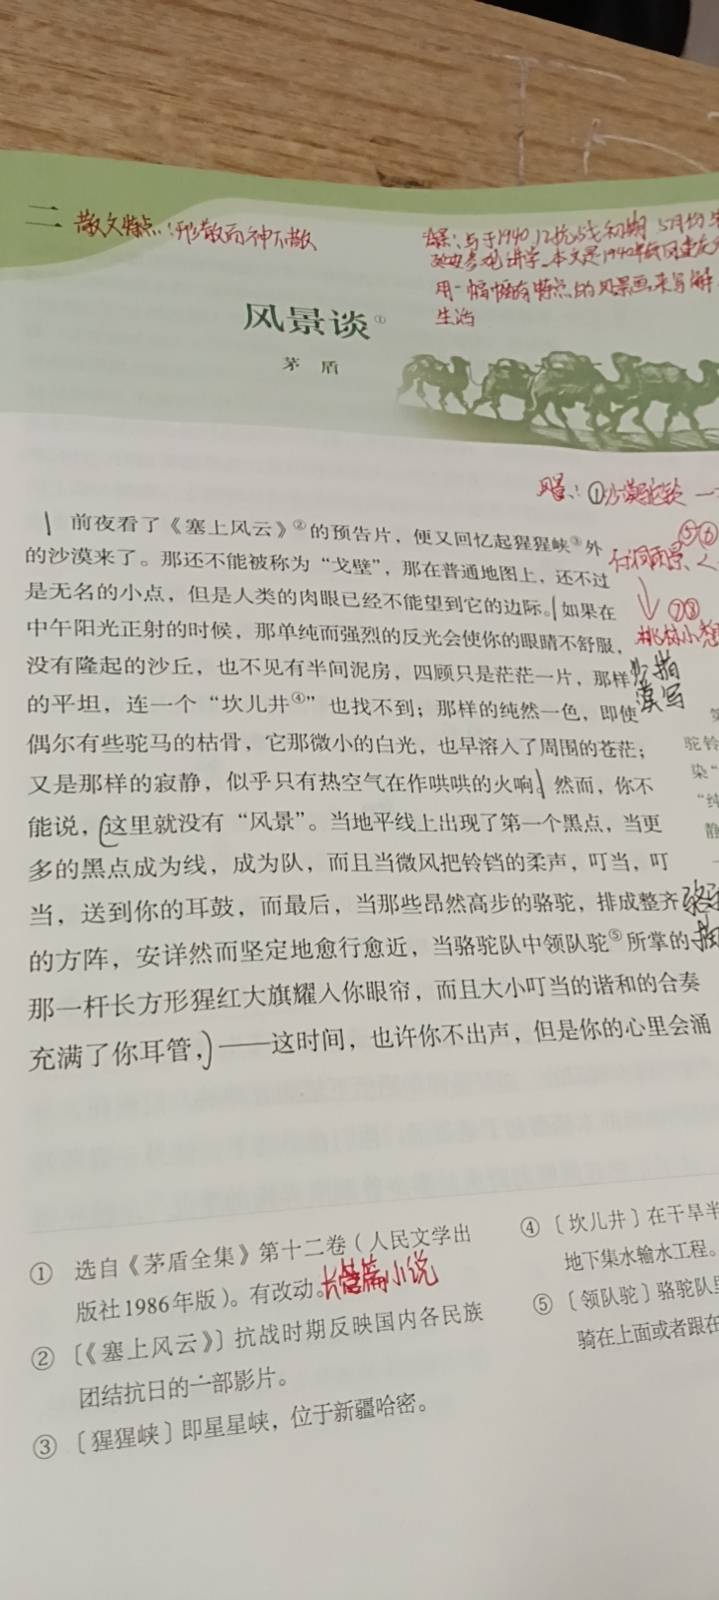 二 散文特点:形散而神不散
背景:写于1940.12抗战初期 5月份
参观讲学.本文是1940年
用一幅幅有特点的风景画来写解
生活
风景谈①
茅 盾
风景:①沙漠驼铃
⑤⑥
⑦⑧
桃林小憩
前夜看了《塞上风云》②的预告片，便又回忆起猩猩峡③外
的沙漠来了。那还不能被称为“戈壁”，那在普通地图上，还不过
是无名的小点，但是人类的肉眼已经不能望到它的边际。如果在
中午阳光正射的时候，那单纯而强烈的反光会使你的眼睛不舒服，
没有隆起的沙丘，也不见有半间泥房，四顾只是茫茫一片，那样
的平坦，连一个“坎儿井④”也找不到；那样的纯然一色，即使
沙漠
描写
偶尔有些驼马的枯骨，它那微小的白光，也早溶入了周围的苍茫；
驼铃
又是那样的寂静，似乎只有热空气在作哄哄的火响。然而，你不
染“
能说，这里就没有“风景”。当地平线上出现了第一个黑点，当更
“纯
静
多的黑点成为线，成为队，而且当微风把铃铛的柔声，叮当，叮
当，送到你的耳鼓，而最后，当那些昂然高步的骆驼，排成整齐
的方阵，安详然而坚定地愈行愈近，当骆驼队中领队驼⑤所掌的
那一杆长方形猩红大旗耀入你眼帘，而且大小叮当的谐和的合奏
充满了你耳管，——这时间，也许你不出声，但是你的心里会涌
① 选自《茅盾全集》第十二卷（人民文学出
版社1986年版）。有改动。长篇小说
②〔《塞上风云》〕抗战时期反映国内各民族
团结抗日的一部影片。
③〔猩猩峡〕即星星峡，位于新疆哈密。
④〔坎儿井〕在干旱半
地下集水输水工程。
⑤〔领队驼〕骆驼队
骑在上面或者跟在